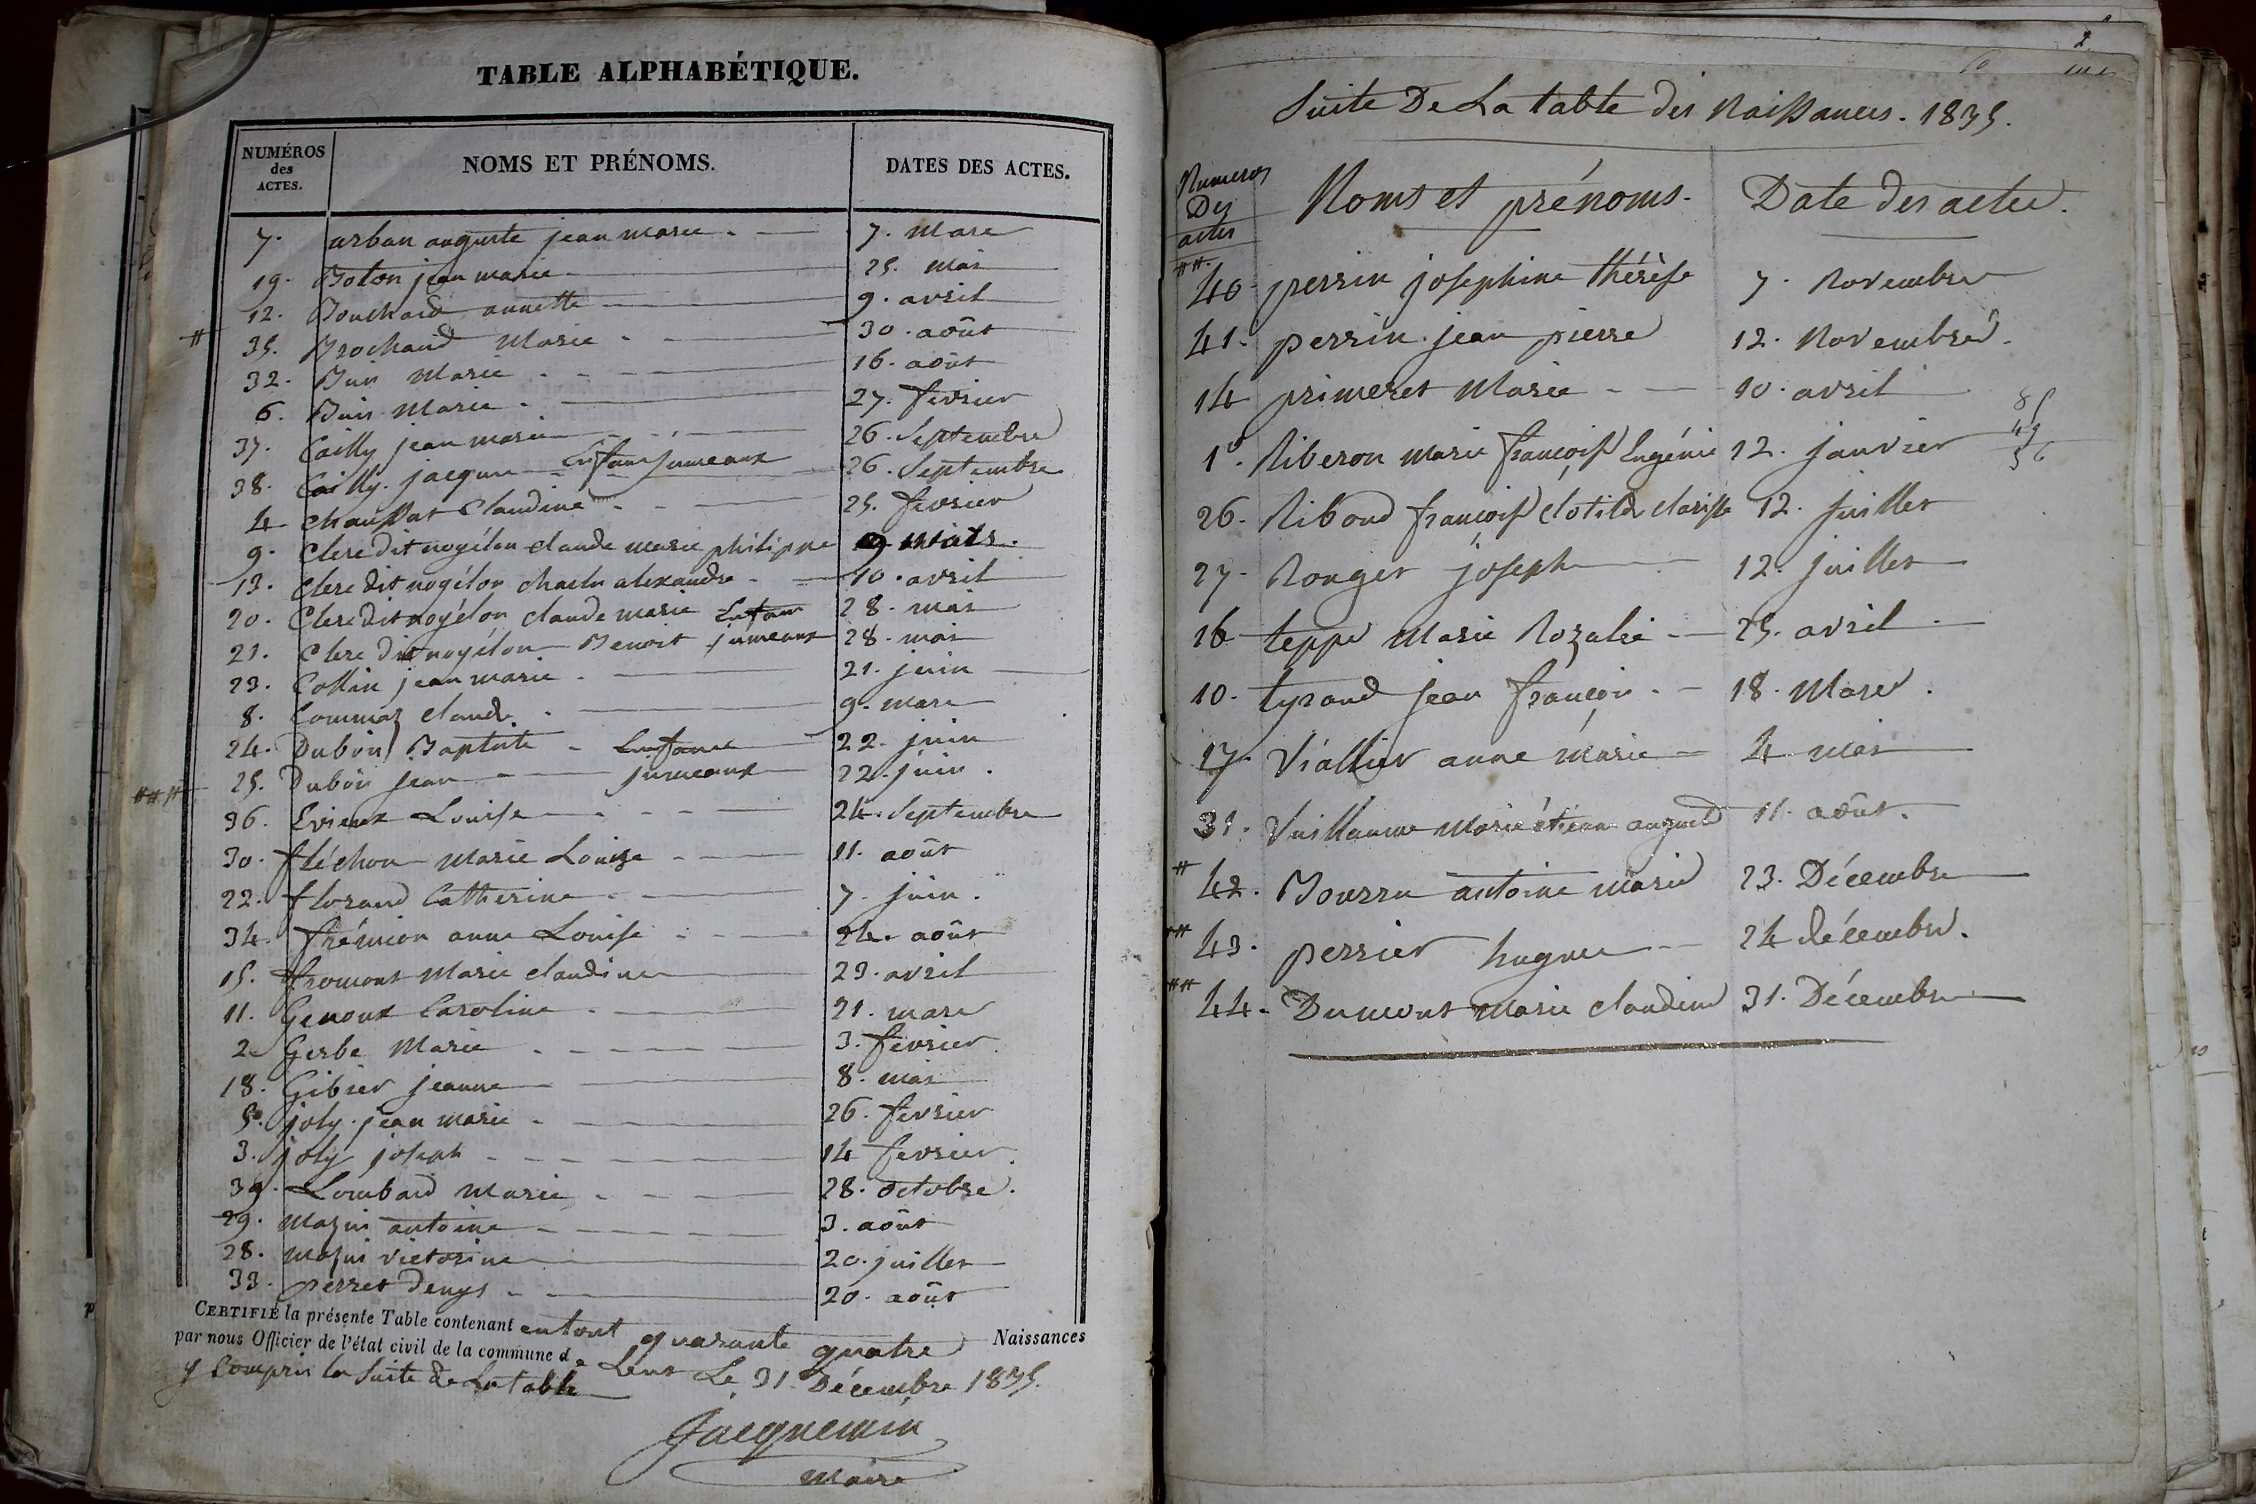 TABLE ALPHABÉTIQUE.
NUMÉROS des ACTES. NOMS ET PRÉNOMS. DATES DES ACTES.
7. urban auguste jean marie 7. Mars
19. Boton jean marie 25. mai
12. Bouchard annette 9. avril
35. Brochand Marie 30. août
32. Buis Marie 16. août
6. Buis Marie 27. fevrier
37. Cailly jean marie 26. Septembre
38. Cailly jacques Enfans jumeaux 26. Septembre
4 Chaussat Claudine 25. fevrier
9. Clere dit nogélon claude marie philippe 9 mars.
13. Clere dit nogélon charles alexandre 10. avril
20. Clere dit nogélon claude marie Enfans 28. mai
21. Clere dit nogélon Benoit jumeaux 28. mai
23. Collin jean marie 21. juin
8. Commaz claude 9. mars
24. Dubois Baptiste Enfans 22. juin
25. Dubois jean jumeaux 22. juin.
36. Evieux Louise 24. Septembre
30. fléchon Marie Louise 11. août
22. florand Catherine 7. juin.
34. frémion anne Louise 24. août
15. fromont Marie claudine 23. avril
11. Genoux Caroline 21. mars
2 Gerbe Marie 3. fevrier
18. Gibier jeanne 8. mai
5. joly jean marie 26. fevrier
3. joly joseph 14 fevrier
39. Lombard Marie 28. octobre.
29. Mazui antoine 3. août
28. mazui victorine 20. juillet
33. perret denys 20. août
CERTIFIÉ la présente Table contenant en tout quarante quatre Naissances
par nous Officier de l'état civil de la commune de Lent Le 31 Décembre 1835.
y Compris la Suite de La table
Jacquemin
Maire
Suite De La table des Naissances. 1835.
Numeros Des actes Noms et prénoms. Date des actes.
40 perrin josephine thérèse 7. Novembre
41. perrin jean pierre 12. Novembre.
14 primeret Marie 10. avril
1º. Riberon marie françoise Eugénie 12. janvier
26. Riboud françoise clotilde clarisse 12. juillet
27. Ronger joseph 12. juillet
16 teppe Marie Rozalie 25. avril
10. tyrand jean françois 18. Mars.
17. Viallier anne marie 4 mai
31. Vuillaume Marie étienne auguste 11. août.
42. Bourru antoine marie 23. Décembre
43. perrier hugues 24 décembre.
44. Dumont Marie claudine 31. Décembre